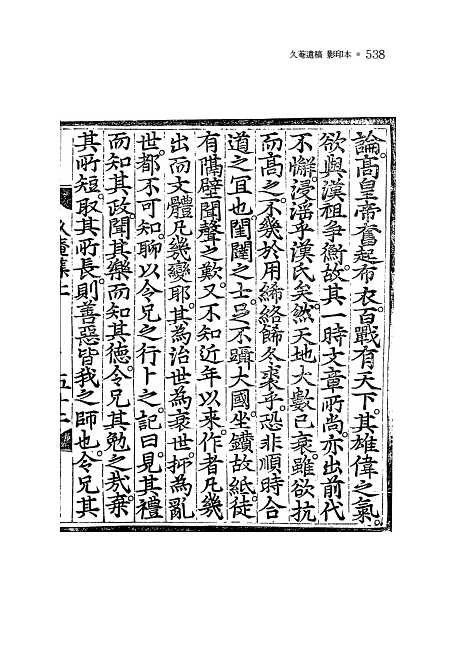 久菴遺稿 影印本 • 538
論。高皇帝奮起布衣。百戰有天下。其雄偉之氣。
欲與漢祖爭衡。故其一時文章所尚。亦出前代
不懈。浸淫乎漢氏矣。然天地大數已衰。雖欲抗
而高之。不幾於用絺綌歸冬裘乎。恐非順時合
道之宜也。閨闥之士。足不躡大國。坐鑽故紙。徒
有隔壁聞聲之歎。又不知近年以來。作者凡幾
出而文體凡幾變耶。其為治世為衰世。抑為亂
世。都不可知。聊以令兄之行卜之。記曰。見其禮
而知其政。聞其樂而知其德。令兄其勉之哉。棄
其所短。取其所長。則善惡皆我之師也。令兄其
久菴集上 五十二